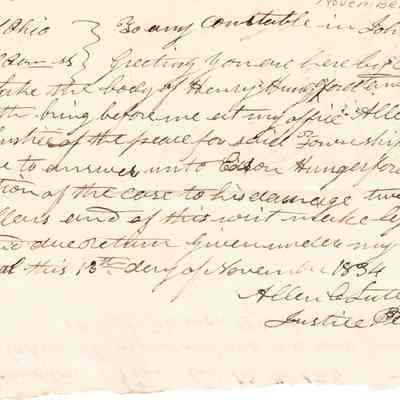 NOVEMBER
Ohio } To any constable in Joh
ss } Greeting You are hereby
take the body of Henry Hungerford
bring before me at my office Alle
Justice of the peace for said Township
to answer unto Edson Hungerfor
tion of the case to his damage twe
llars and of this writ make le
due return Given under my
al this 13th day of November 1834
Allen C Lutt
Justice Pe